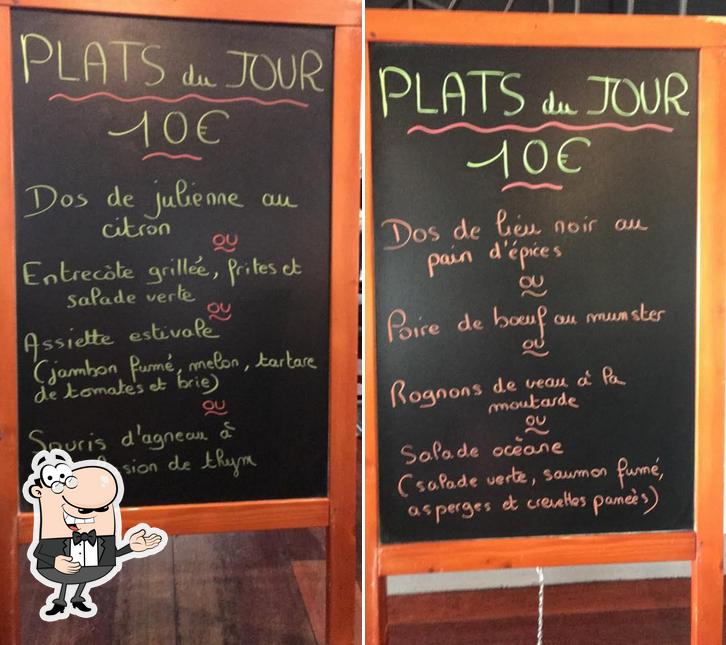 PLATS du JOUR
10€
Dos de julienne au
citron
ou
Entrecôte grillée, frites et
salade verte
ou
Assiette estivale
(jambon fumé, melon, tartare
de tomates et brie)
ou
Souris d'agneau à
de thym
PLATS du JOUR
10€
Dos de lieu noir au
pain d'épices
ou
Poire de boeuf au munster
ou
Rognons de veau à la
moutarde
ou
Salade océane
(salade verte, saumon fumé,
asperges et crevettes panées)